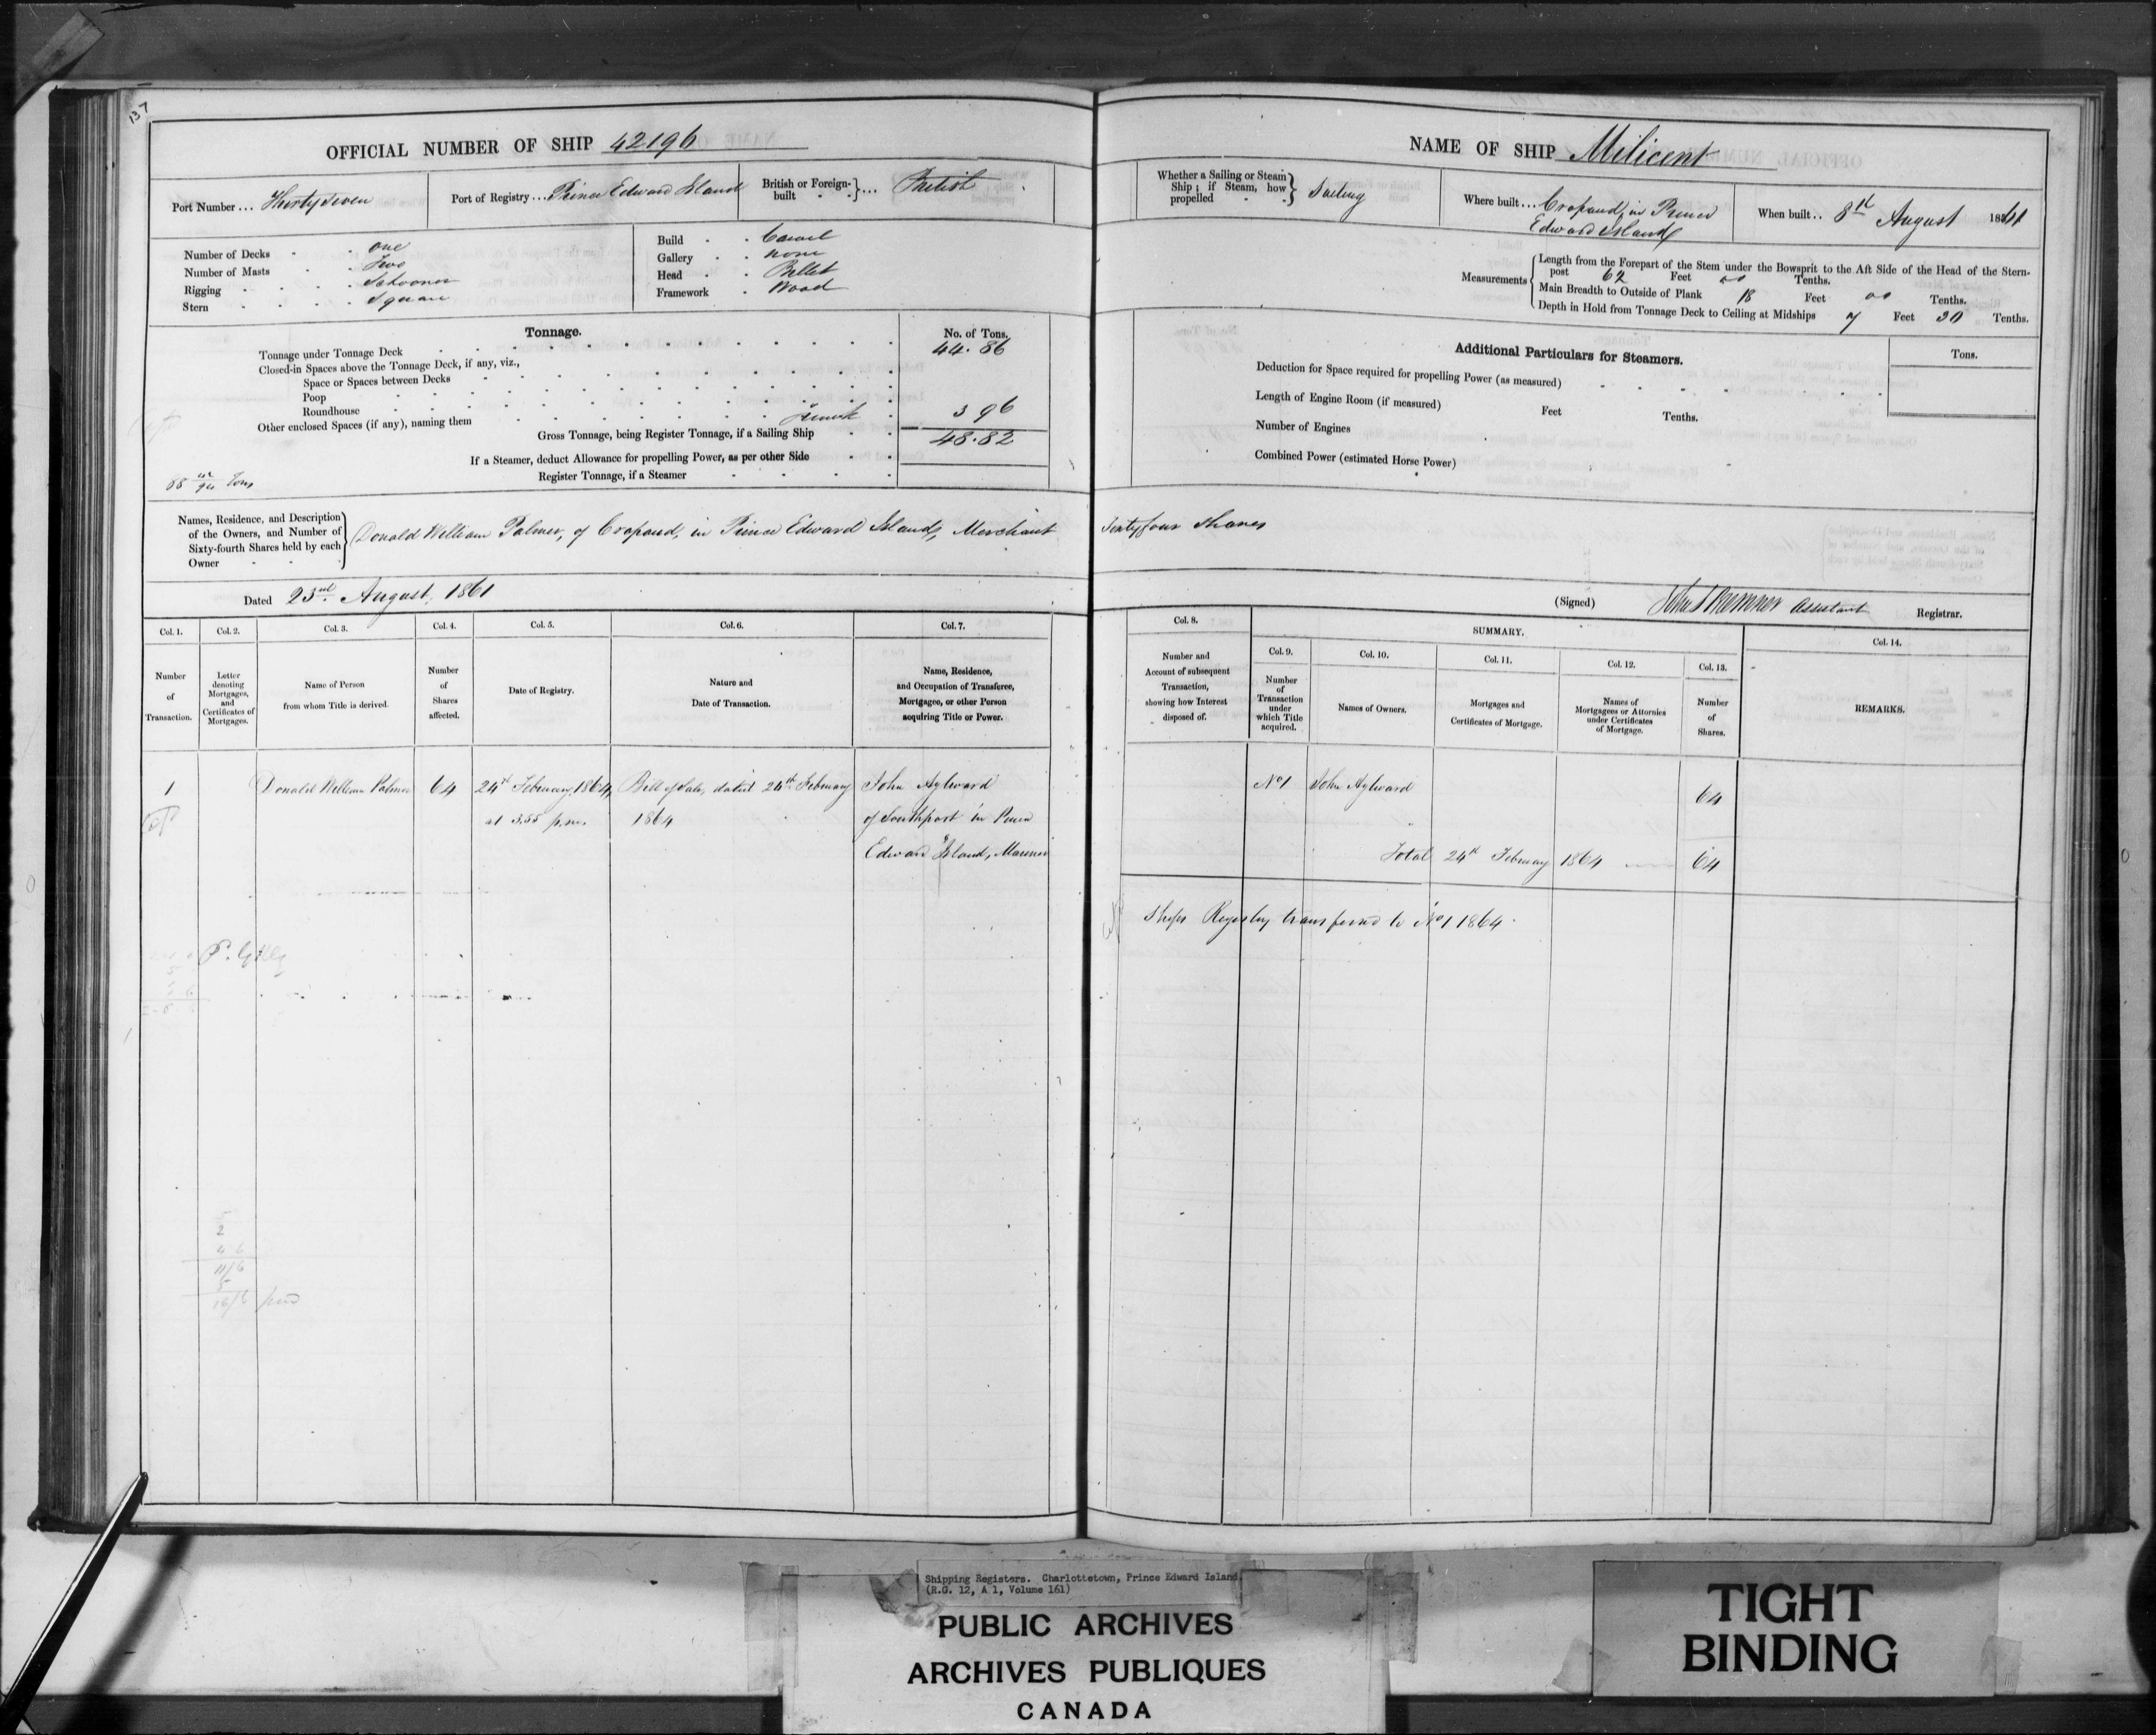 137
OFFICIAL NUMBER OF SHIP 42196
Port Number ... Thirty Seven
Port of Registry ... Prince Edward Island
British or Foreign-built ... British
Number of Decks one
Number of Masts Two
Rigging Schooner
Stern Square
Build Carvel
Gallery none
Head Billet
Framework Wood
Tonnage.
No. of Tons.
Tonnage under Tonnage Deck 44.86
Closed-in Spaces above the Tonnage Deck, if any, viz.,
Space or Spaces between Decks
Poop
Roundhouse
Other enclosed Spaces (if any), naming them 3 96
Gross Tonnage, being Register Tonnage, if a Sailing Ship 48.82
If a Steamer, deduct Allowance for propelling Power, as per other Side
Register Tonnage, if a Steamer
Tons
Names, Residence, and Description of the Owners, and Number of Sixty-fourth Shares held by each Owner
Donald William Palmer, of Crapaud, in Prince Edward Island, Merchant
Dated 23rd August, 1861
Col. 1. Col. 2. Col. 3. Col. 4. Col. 5. Col. 6. Col. 7.
Number of Transaction.
Letter denoting Mortgages, and Certificates of Mortgages.
Name of Person from whom Title is derived.
Number of Shares affected.
Date of Registry.
Nature and Date of Transaction.
Name, Residence, and Occupation of Transferee, Mortgagee, or other Person acquiring Title or Power.
1 Donald William Palmer 64 24th February, 1864, Bill of Sale, dated 24th February John Aylward
at 3.55 p.m. 1864 of Southport in Prince
Edward Island, Mariner
5
2
4 6
11/6
5
16/6 paid
NAME OF SHIP Milicent
Whether a Sailing or Steam Ship; if Steam, how propelled Sailing
Where built ... Crapaud, in Prince
Edward Island
When built .. 8th August 1861
Measurements
Length from the Forepart of the Stem under the Bowsprit to the Aft Side of the Head of the Stern-
post 62 Feet 00 Tenths.
Main Breadth to Outside of Plank 18 Feet 00 Tenths.
Depth in Hold from Tonnage Deck to Ceiling at Midships 7 Feet 30 Tenths.
Additional Particulars for Steamers.
Tons.
Deduction for Space required for propelling Power (as measured)
Length of Engine Room (if measured) Feet Tenths.
Number of Engines
Combined Power (estimated Horse Power)
Sixty four shares
(Signed) Assistant Registrar.
Col. 8. SUMMARY. Col. 14.
Col. 9. Col. 10. Col. 11. Col. 12. Col. 13.
Number and Account of subsequent Transaction, showing how Interest disposed of.
Number of Transaction under which Title acquired.
Names of Owners.
Mortgages and Certificates of Mortgage.
Names of Mortgagees or Attornies under Certificates of Mortgage.
Number of Shares.
REMARKS.
No 1 John Aylward 64
Total 24th February 1864 64
Ships Registry transferred to No 1 1864
Shipping Registers. Charlottetown, Prince Edward Island.
(R.G. 12, A 1, Volume 161)
PUBLIC ARCHIVES
ARCHIVES PUBLIQUES
CANADA
TIGHT
BINDING